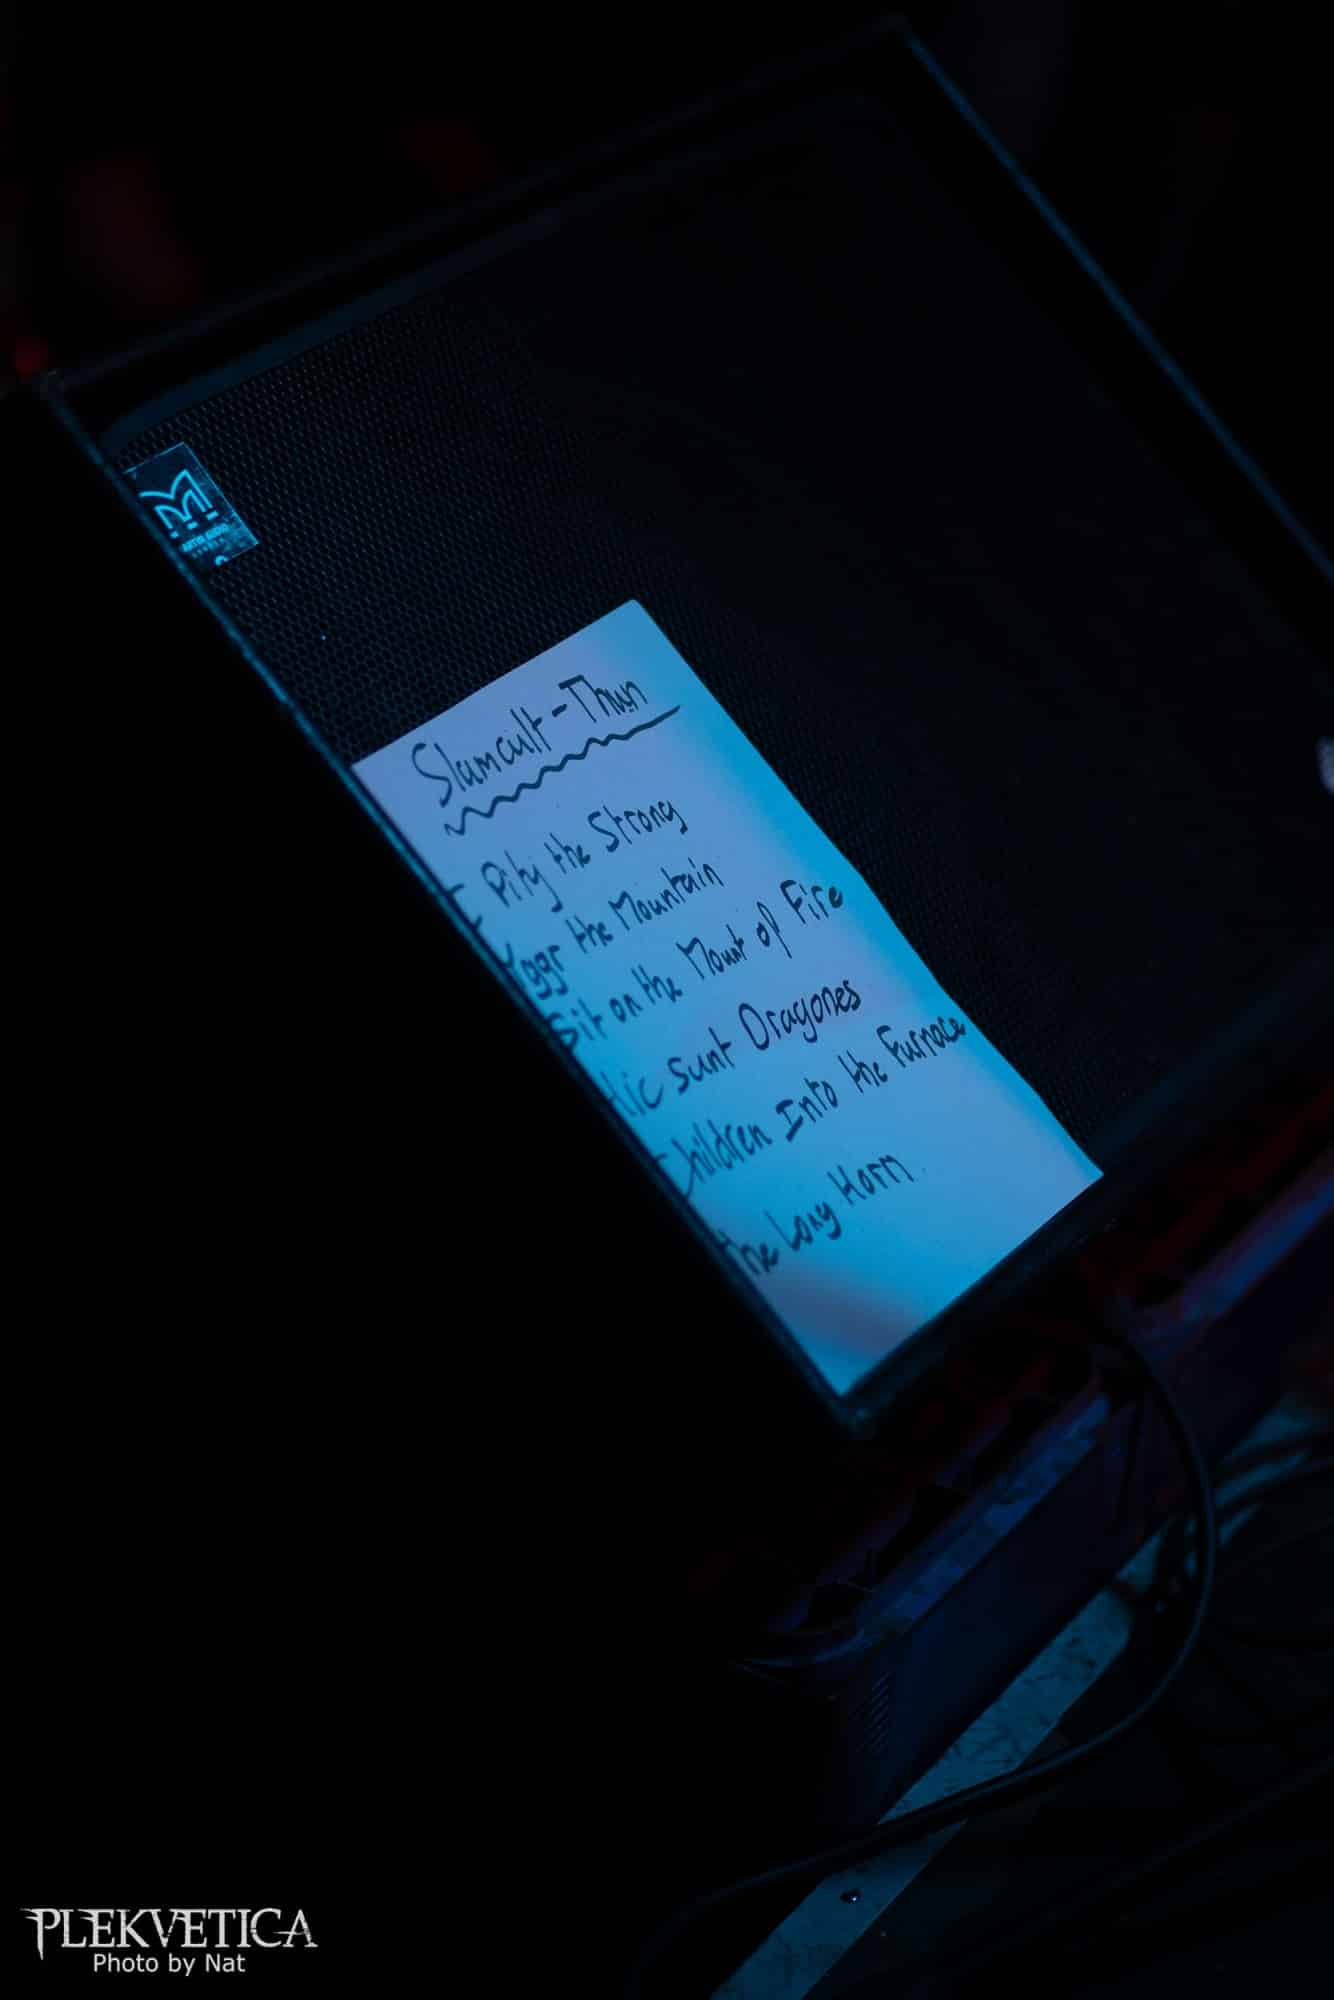 Slamcult - Thun
I Pity the Strong
Yggr the Mountain
Sit on the Mount of Fire
Hic sunt Dragones
Children Into the Furnace
the Long Horn
MARTIN AUDIO
LONDON
PLEKVETICA
Photo by Nat